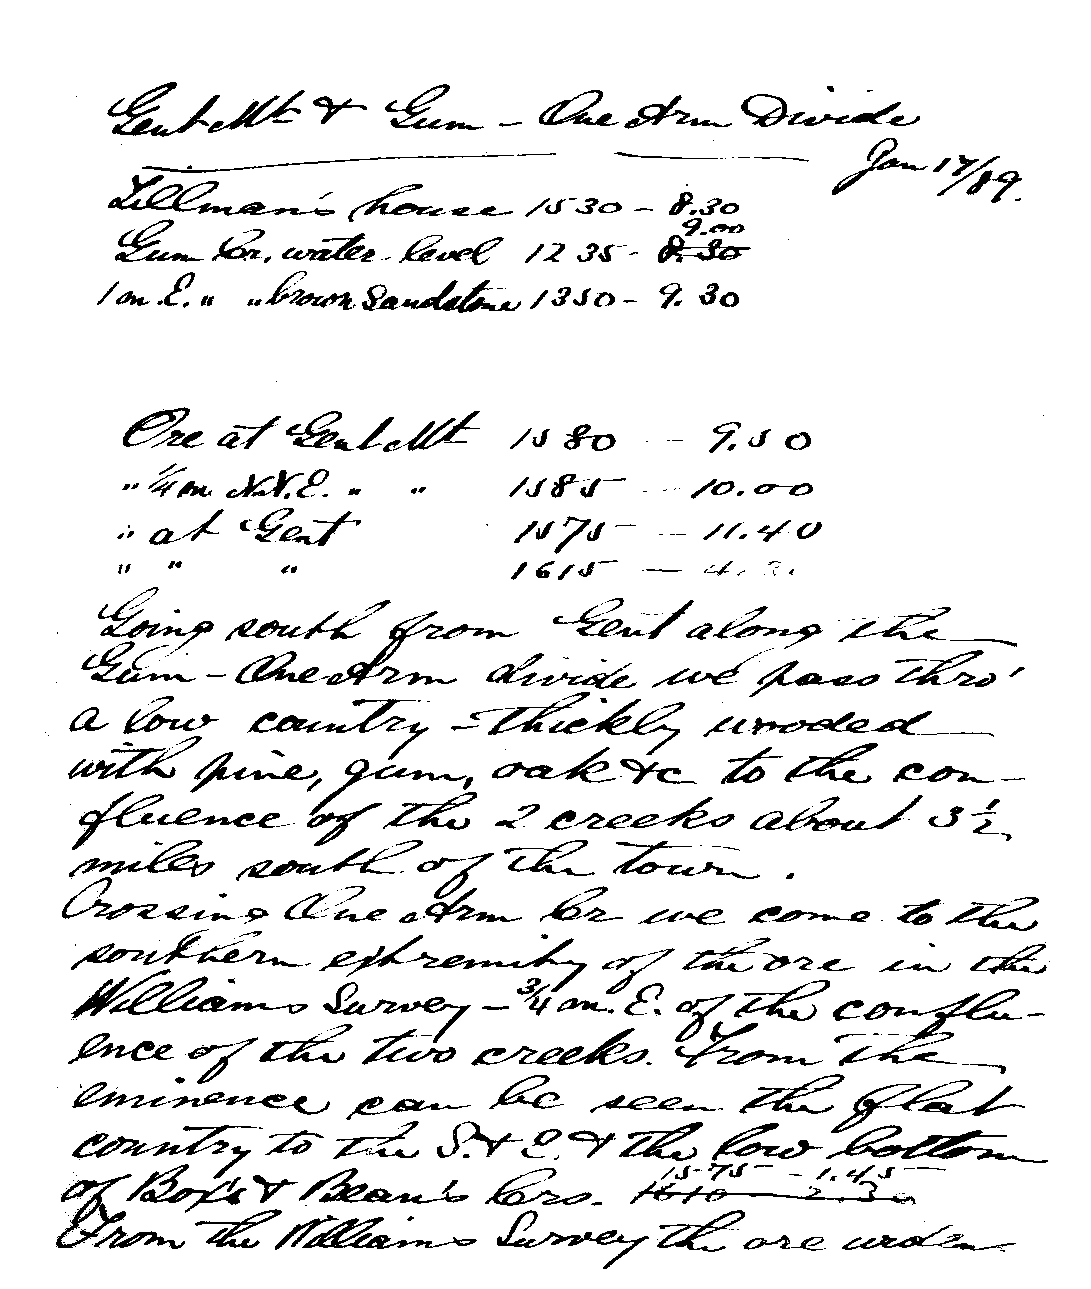 Gent Mt & Gum - One Arm Divide
Jan 17/89.
Tillman's house 1530 - 8.30
9.00
Gum Cr. water level 1235 - 8.30
1 m. E. " " brown sandstone 1350 - 9.30
Ore at Gent Mt 1580 - 9.50
" 1/4 m N.N.E. " " 1585 - 10.00
" at Gent 1575 - 11.40
" " " 1615 -
Going south from Gent along the
Gum - One Arm divide we pass thro'
a low country - thickly wooded
with pine, gum, oak &c to the con-
fluence of the 2 creeks about 3 1/2
miles south of the town.
Crossing One Arm Cr we come to the
southern extremity of the ore in the
Williams Survey - 3/4 m. E. of the conflu-
ence of the two creeks. From the
eminence can be seen the flat
country to the S. & E. & the low bottom
1575 - 1.45
of Box's & Bean's Crs. 1610 - 2.30
From the Williams Survey the ore widen